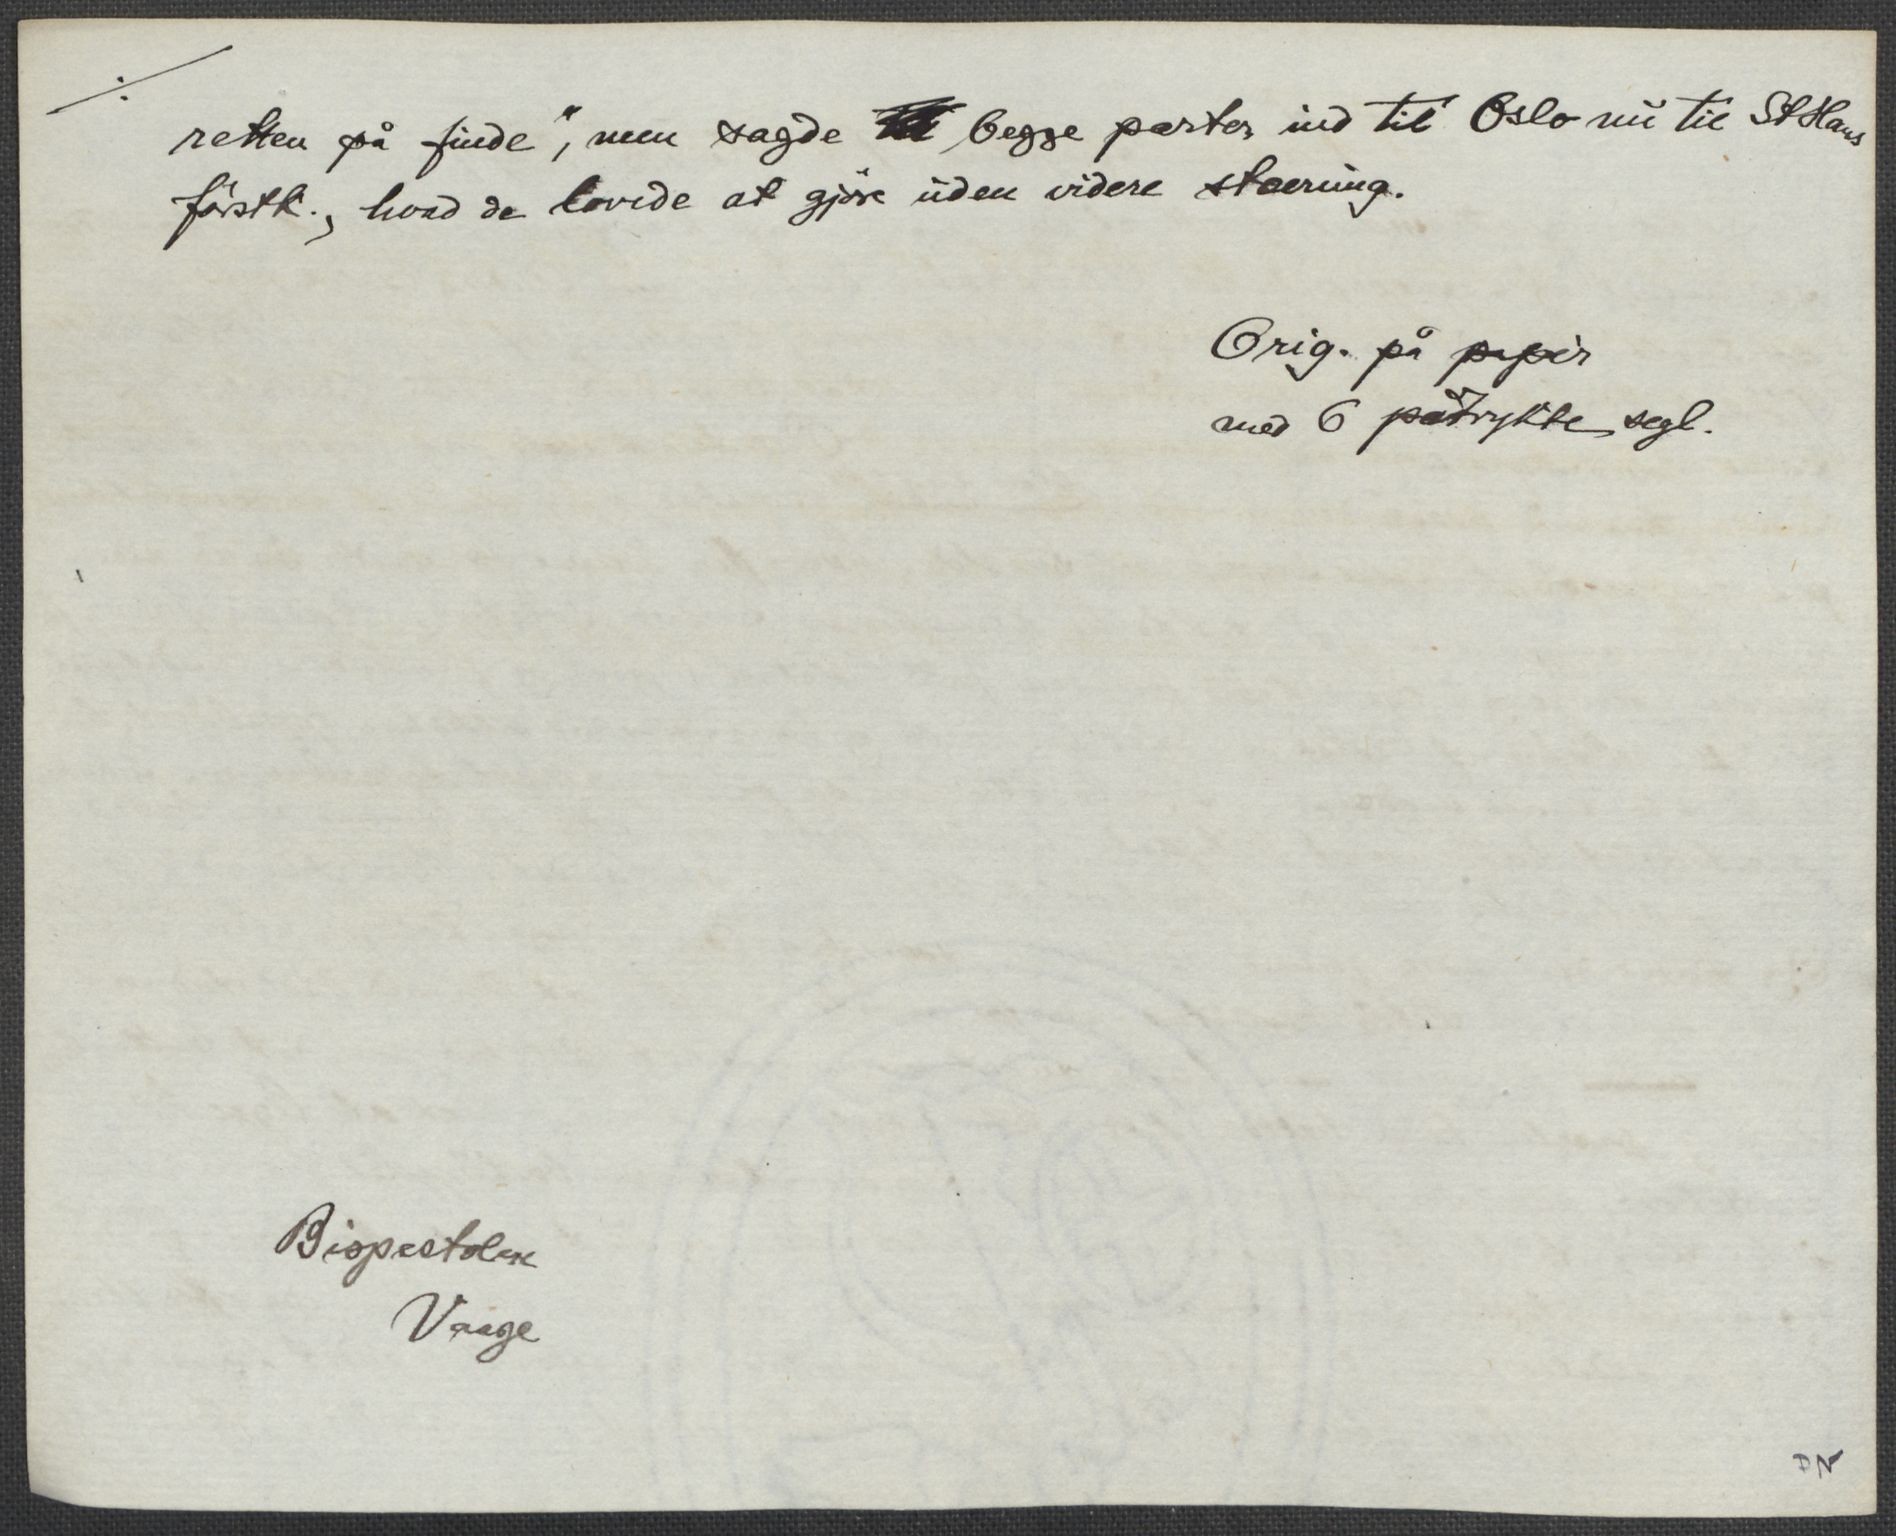 retten på finde", men sagde begge parter ind til Oslo nu til St Hans
förstk., hvad de lovede at gjöre uden videre stævning.
Orig. på papir
med 6 påtrykte segl.
Bispestolen
Vaage
DN